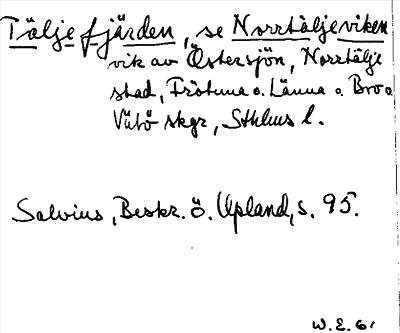 Tälje fjärden, se Norrtäljeviken
vik av Östersjön, Norrtälje
stad, Frötuna o. Länna o. Bro o
Vätö skgr, Sthlms l.
Salvius, Beskr. ö. Upland, s. 95.
W. E. 61